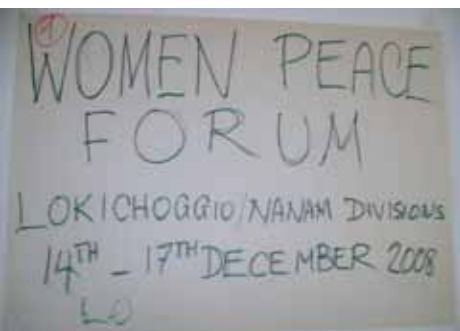 1
WOMEN PEACE
FORUM
LOKICHOGGIO/NANAM DIVISIONS
14TH - 17TH DECEMBER 2008
LO